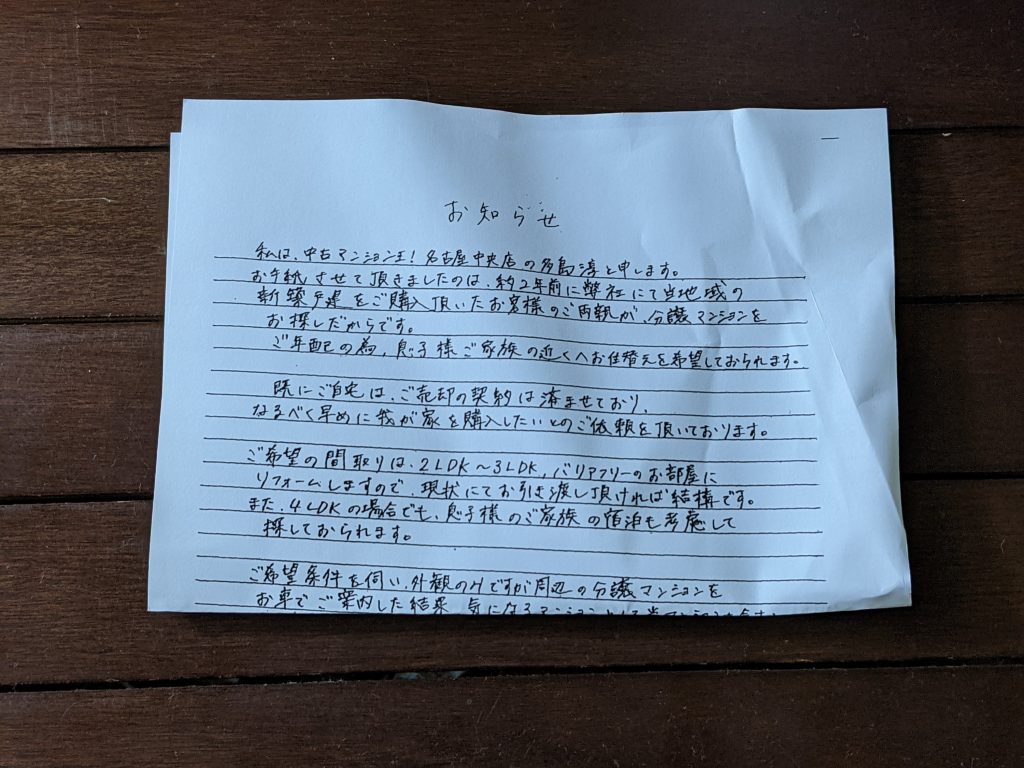 お知らせ
私は、中古マンション王!名古屋中央店の多島淳と申します。
お手紙させて頂きましたのは、約2年前に弊社にて当地域の
新築戸建をご購入頂いたお客様のご両親が、分譲マンションを
お探しだからです。
ご年配の為、息子様ご家族の近くへお住替えを希望しておられます。
既にご自宅は、ご売却の契約は済ませており、
なるべく早めに我が家を購入したいとのご依頼を頂いております。
ご希望の間取りは、2LDK〜3LDK、バリアフリーのお部屋に
リフォームしますので、現状にてお引き渡し頂ければ結構です。
また、4LDKの場合でも、息子様のご家族の宿泊も考慮して
探しておられます。
ご希望条件を伺い、外観のみですが周辺の分譲マンションを
お車でご案内した結果、気になるマンションとして当マンションも